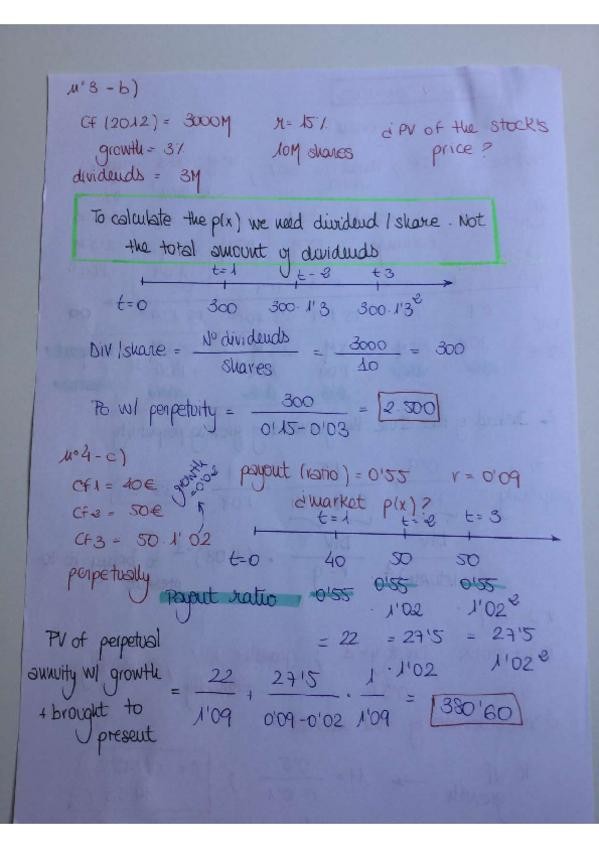 nº3-b)
CF(2012) = 3000M r = 15% ¿PV of the stock's
growth = 3% 10M shares price?
dividends = 3M
To calculate the p(x) we need dividend / share. Not
the total amount of dividends
t=1 t=2 t3
t=0 300 300·1'3 300·1'3²
Div/share = Nº dividends / shares = 3000 / 10 = 300
Po w/ perpetuity = 300 / 0'15-0'03 = 2.500
nº4-c)
payout (ratio) = 0'55 r = 0'09
CF1 = 40€ growth
CF2 = 50€ ¿market p(x)?
t=1 t=2 t=3
CF3 = 50·1'02
t=0 40 50 50
perpetually payout ratio 0'55 0'55 0'55
1'02 1'02²
PV of perpetual = 22 = 27'5 = 27'5
·1'02 1'02²
annuity w/ growth = 22 / 1'09 + 27'5 / 0'09-0'02 · 1 / 1'09 = 380'60
+ brought to
present